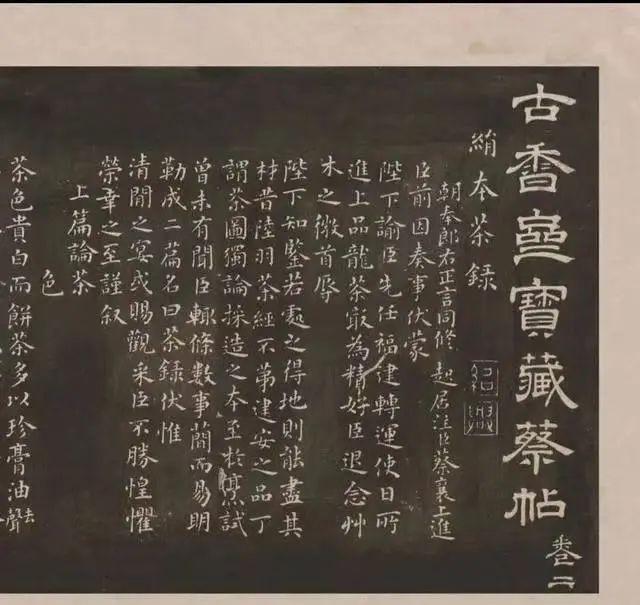 古香齋寶藏蔡帖
卷二
絹本茶録
紹興
朝奉郎右正言同修起居注臣蔡襄上進
臣前因奏事伏蒙
陛下諭臣先任福建轉運使日所
進上品龍茶冣為精好臣退念艸
木之微首辱
陛下知鑒若處之得地則能盡其
材昔陸羽茶經不第建安之品丁
謂茶圖獨論採造之本至於烹試
曾未有聞臣輒條數事簡而易明
勒成二篇名曰茶録伏惟
清閒之宴或賜觀采臣不勝惶懼
榮幸之至謹叙
上篇論茶
色
茶色貴白而餅茶多以珍膏油去聲